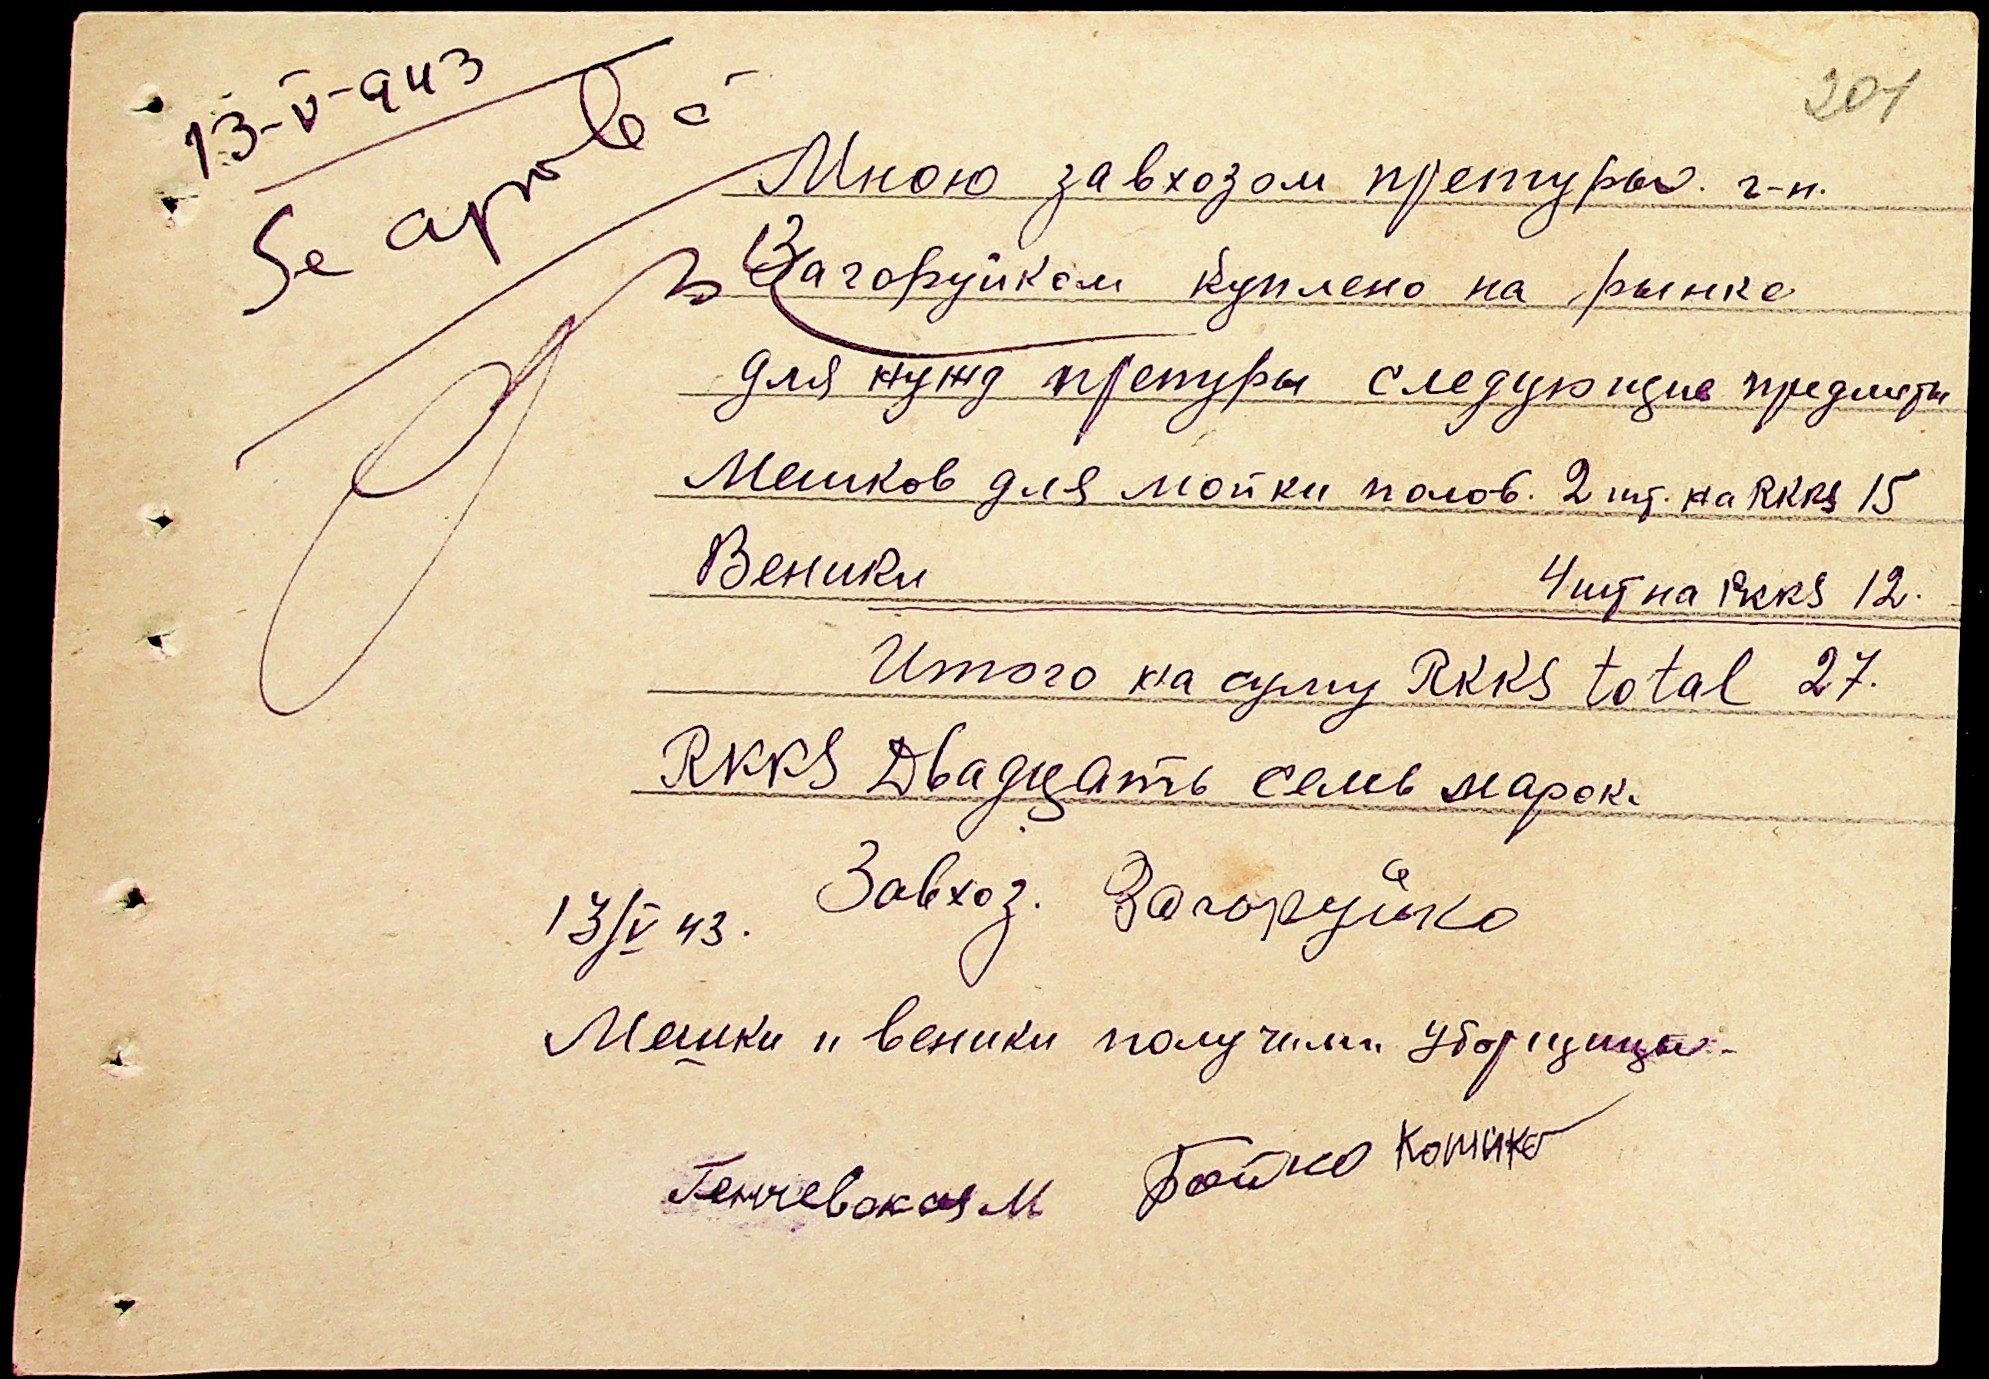 201
13-V-943
Se aprobă
Мною завхозом претуры г-н.
Загоруйком куплено на рынке
для нужд претуры следующие предметы
Мешков для мойки полов. 2 шт. на RKKS 15
Веники 4 шт на RKKS 12.
Итого на суму RKKS total 27.
RKKS Двадцать семь марок.
13/V 43. Завхоз. Загоруйко
Мешки и веники получили уборщицы
Бойко